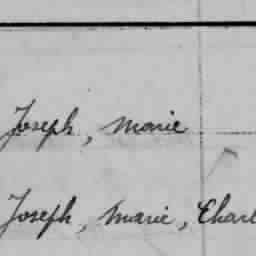 Joseph, Marie
Joseph, Marie, Charl